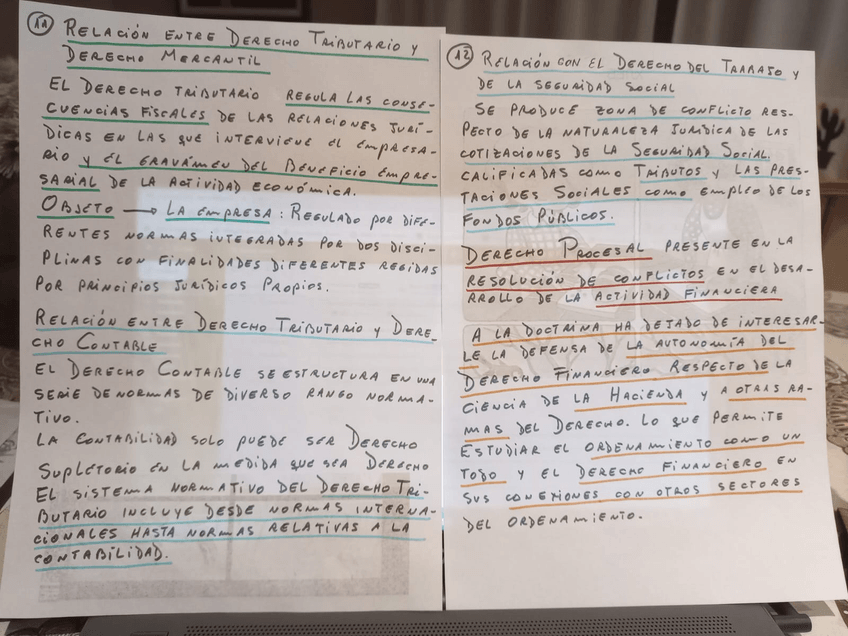 11 RELACIÓN ENTRE DERECHO TRIBUTARIO Y
DERECHO MERCANTIL
EL DERECHO TRIBUTARIO REGULA LAS CONSE-
CUENCIAS FISCALES DE LAS RELACIONES JURÍ-
DICAS EN LAS QUE INTERVIENE EL EMPRESA-
RIO Y EL GRAVÁMEN DEL BENEFICIO EMPRE-
SARIAL DE LA ACTIVIDAD ECONÓMICA.
OBJETO → LA EMPRESA: REGULADO POR DIFE-
RENTES NORMAS INTEGRADAS POR DOS DISCI-
PLINAS CON FINALIDADES DIFERENTES REGIDAS
POR PRINCIPIOS JURÍDICOS PROPIOS.
RELACIÓN ENTRE DERECHO TRIBUTARIO Y DERE-
CHO CONTABLE
EL DERECHO CONTABLE SE ESTRUCTURA EN UNA
SERIE DE NORMAS DE DIVERSO RANGO NORMA-
TIVO.
LA CONTABILIDAD SOLO PUEDE SER DERECHO
SUPLETORIO EN LA MEDIDA QUE SEA DERECHO
EL SISTEMA NORMATIVO DEL DERECHO TRI-
BUTARIO INCLUYE DESDE NORMAS INTERNA-
CIONALES HASTA NORMAS RELATIVAS A LA
CONTABILIDAD.
12 RELACIÓN CON EL DERECHO DEL TRABAJO Y
DE LA SEGURIDAD SOCIAL
SE PRODUCE ZONA DE CONFLICTO RES-
PECTO DE LA NATURALEZA JURÍDICA DE LAS
COTIZACIONES DE LA SEGURIDAD SOCIAL.
CALIFICADAS COMO TRIBUTOS Y LAS PRES-
TACIONES SOCIALES COMO EMPLEO DE LOS
FONDOS PÚBLICOS.
DERECHO PROCESAL PRESENTE EN LA
RESOLUCIÓN DE CONFLICTOS EN EL DESA-
RROLLO DE LA ACTIVIDAD FINANCIERA
A LA DOCTRINA HA DEJADO DE INTERESAR-
LE LA DEFENSA DE LA AUTONOMÍA DEL
DERECHO FINANCIERO RESPECTO DE LA
CIENCIA DE LA HACIENDA Y A OTRAS RA-
MAS DEL DERECHO. LO QUE PERMITE
ESTUDIAR EL ORDENAMIENTO COMO UN
TODO Y EL DERECHO FINANCIERO EN
SUS CONEXIONES CON OTROS SECTORES
DEL ORDENAMIENTO.